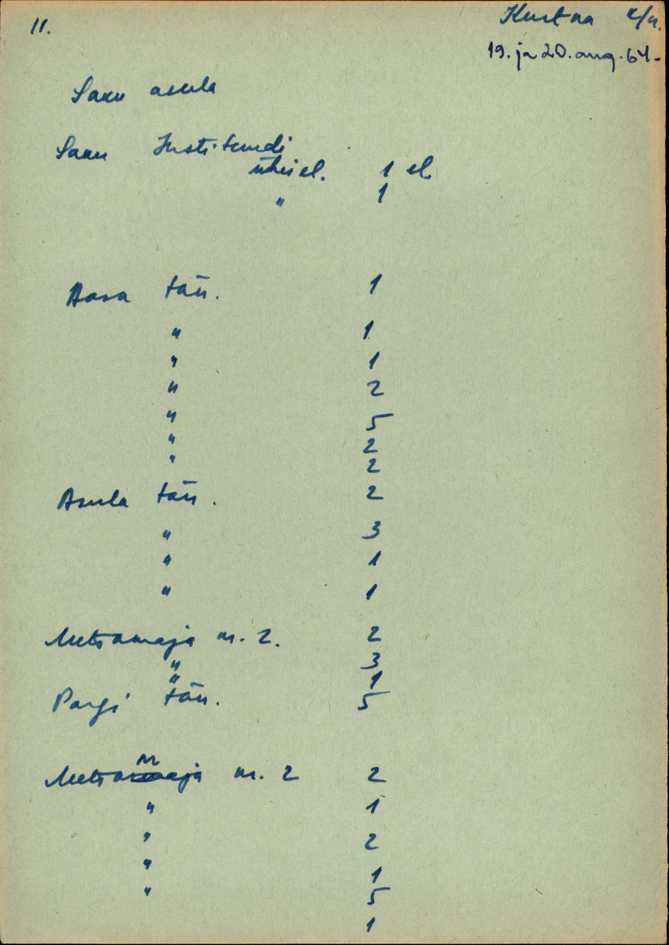 11.
Kurtna k/n.
19. ja 20. aug. 64.
Saku asula
Saku Instituudi
ühisel. 1 el
" 1
Aasa tän. 1
" 1
" 1
" 2
" 5
" 2
" 2
Asula tän. 2
" 3
" 1
" 1
Metsamaja nr. 2. 2
" 3
" 1
Pargi tän. 5
Metsamaja nr. 2 2
" 1
" 2
" 1
" 5
1